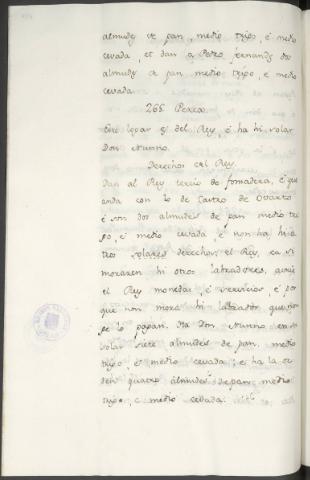 almudes de pan, medio trigo, é medio
cevada, et dan a Pedro fernandez dos
almudes de pan medio trigo, é medio
cevada.
265 Perex
Este logar es del Rey, é ha hi solar
Don Nunno.
Derechos del Rey.
Dan al Rey tercio de fonsadera, é que
anda con lo de Castro de Ovarto
é son dos almudes de pan medio tri
go, é medio cevada, é non ha hi o
tros solares derechos el Rey, ca si
moraren hi otros labradores, avrie
el Rey monedas, é servicios, é por
que non mora hi labrador que non
ge lo pagan. Ha Don Nunno en su
solar siete almudes de pan, medio
trigo é medio cevada; é ha la
den quatro almudes de pan medio
trigo, é medio cevada.